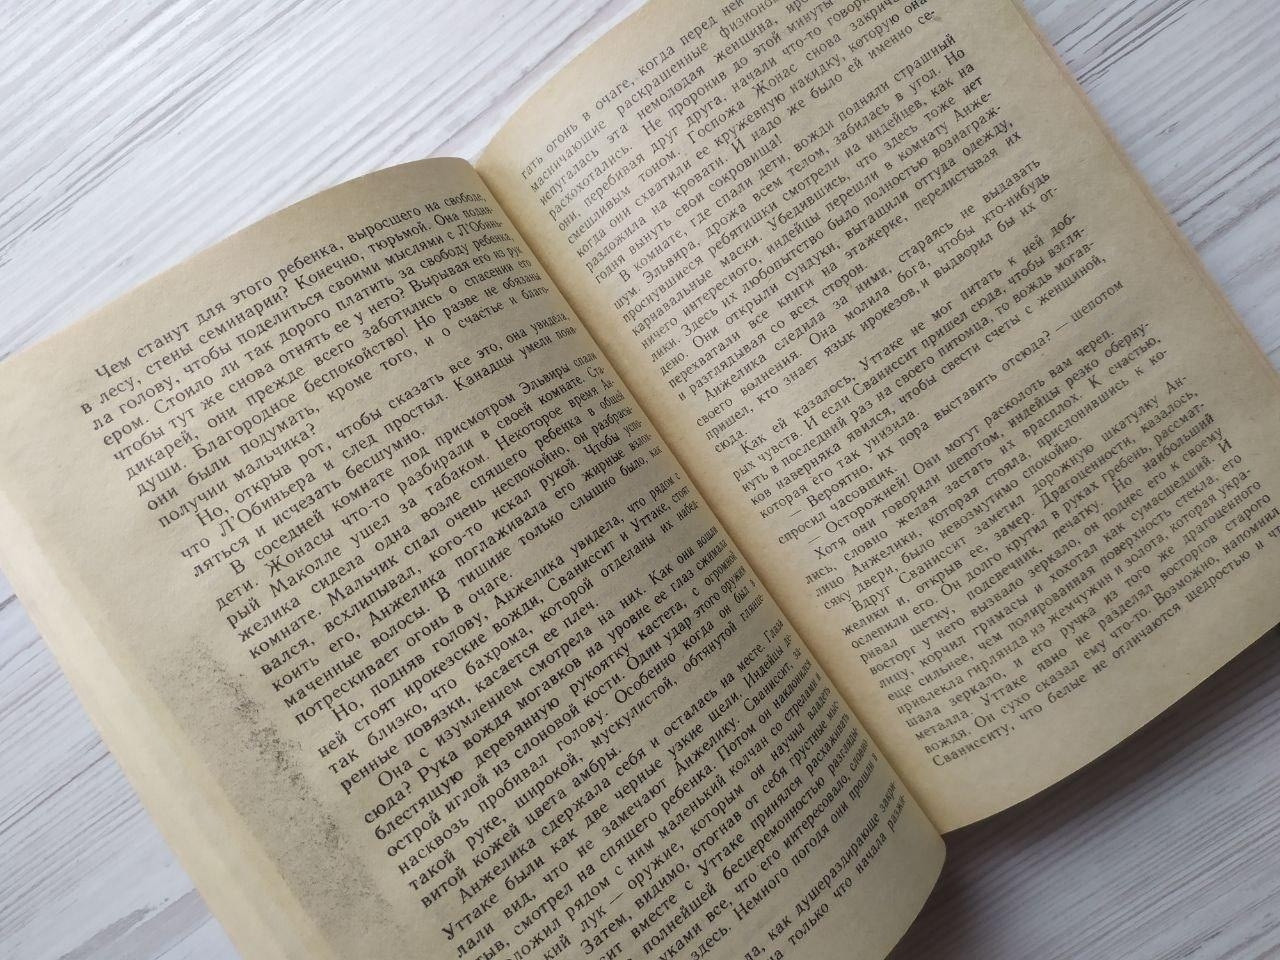 Чем станут для этого ребенка, выросшего на свободе,
в лесу, стены семинарии? Конечно, тюрьмой. Она подня-
ла голову, чтобы поделиться своими мыслями с Л'Обинь-
ером. Стоило ли так дорого платить за свободу ребенка,
чтобы тут же снова отнять ее у него? Вырывая его из рук
дикарей, они прежде всего заботились о спасении его
души. Благородное беспокойство! Но разве не обязаны
они были подумать, кроме того, и о счастье и благо-
получии мальчика?
Но, открыв рот, чтобы сказать все это, она увидела,
что Л'Обиньера и след простыл. Канадцы умели появ-
ляться и исчезать бесшумно.
В соседней комнате под присмотром Эльвиры спали
дети. Жонасы что-то разбирали в своей комнате. Ста-
рый Маколле ушел за табаком. Некоторое время Ан-
желика сидела одна возле спящего ребенка в общей
комнате. Мальчик спал очень неспокойно, он разбрасы-
вался, всхлипывал, кого-то искал рукой. Чтобы успо-
коить его, Анжелика поглаживала его жирные взлох-
маченные волосы. В тишине только слышно было, как
потрескивает огонь в очаге.
Но, подняв голову, Анжелика увидела, что рядом с
ней стоят ирокезские вожди, Сваниссит и Уттаке, стоят
так близко, что бахрома, которой отделаны их набед-
ренные повязки, касается ее плеч.
Она с изумлением смотрела на них. Как они вошли
сюда? Рука вождя могавков на уровне ее глаз сжимала
блестящую деревянную рукоятку кастета, с огромной
острой иглой из слоновой кости. Один удар этого оружия
насквозь пробивал голову. Особенно когда он был в
такой руке, широкой, мускулистой, обтянутой глянце-
витой кожей цвета амбры.
Анжелика сдержала себя и осталась на месте. Глаза
Уттаке были как две черные узкие щели. Индейцы де-
лали вид, что не замечают Анжелику. Сваниссит, за-
тыв, смотрел на спящего ребенка. Потом он наклонился
ложил рядом с ним маленький колчан со стрелами и
кий лук — оружие, которым он научил владеть
Затем, видимо, отогнав от себя грустные мыс-
сит вместе с Уттаке принялся расхаживать
полнейшей бесцеремонностью разгляды-
уками все, что его интересовало, словно
здесь. Немного погодя они прошли в
а, как душераздирающе закри-
только что начала разжи-
гать огонь в очаге, когда перед ней
масничающие раскрашенные физионо
испугалась эта немолодая женщина, иро
расхохотались. Не проронив до этой минуты
они, перебивая друг друга, начали что-то говори
смешливым тоном. Госпожа Жонас снова закричал
когда они схватили ее кружевную накидку, которую она
разложила на кровати. И надо же было ей именно се-
годня вынуть свои сокровища!
В комнате, где спали дети, вожди подняли страшный
шум. Эльвира, дрожа всем телом, забилась в угол. Но
проснувшиеся ребятишки смотрели на индейцев, как на
карнавальные маски. Убедившись, что здесь тоже нет
ничего интересного, индейцы перешли в комнату Анже-
лики. Здесь их любопытство было полностью вознаграж-
дено. Они открыли сундуки, вытащили оттуда одежду,
перехватали все книги на этажерке, перелистывая их
и разглядывая со всех сторон.
Анжелика следила за ними, стараясь не выдавать
своего волнения. Она молила бога, чтобы кто-нибудь
пришел, кто знает язык ирокезов, и выдворил бы их от-
сюда.
Как ей казалось, Уттаке не мог питать к ней доб-
рых чувств. И если Сваниссит пришел сюда, чтобы взгля-
нуть в последний раз на своего питомца, то вождь могав-
ков наверняка явился, чтобы свести счеты с женщиной,
которая его так унизила.
— Вероятно, их пора выставить отсюда? — шепотом
спросил часовщик.
— Осторожней! Они могут расколоть вам череп.
Хотя они говорили шепотом, индейцы резко оберну-
лись, словно желая застать их врасплох. К счастью,
лицо Анжелики, которая стояла, прислонившись к ко-
сяку двери, было невозмутимо спокойно.
Вдруг Сваниссит заметил дорожную шкатулку Ан-
желики и, открыв ее, замер. Драгоценности, казалось,
ослепили его. Он долго крутил в руках гребень, рассмат-
ривал щетку, подсвечник, печатку. Но наибольший
восторг у него вызвало зеркало, он поднес его к своему
лицу, корчил гримасы и хохотал как сумасшедший. И
еще сильнее, чем полированная поверхность стекла, его
привлекла гирлянда из жемчужин и золота, которая укра-
шала зеркало, и его ручка из того же драгоценного
металла. Уттаке явно не разделял восторгов старого
вождя. Он сухо сказал ему что-то. Возможно, напомнил
Сванисситу, что белые не отличаются щедростью и ч